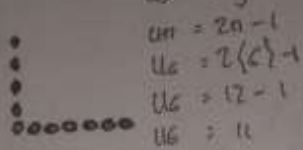 un = 2n - 1
U6 = 2(6) - 1
U6 = 12 - 1
U6 = 11